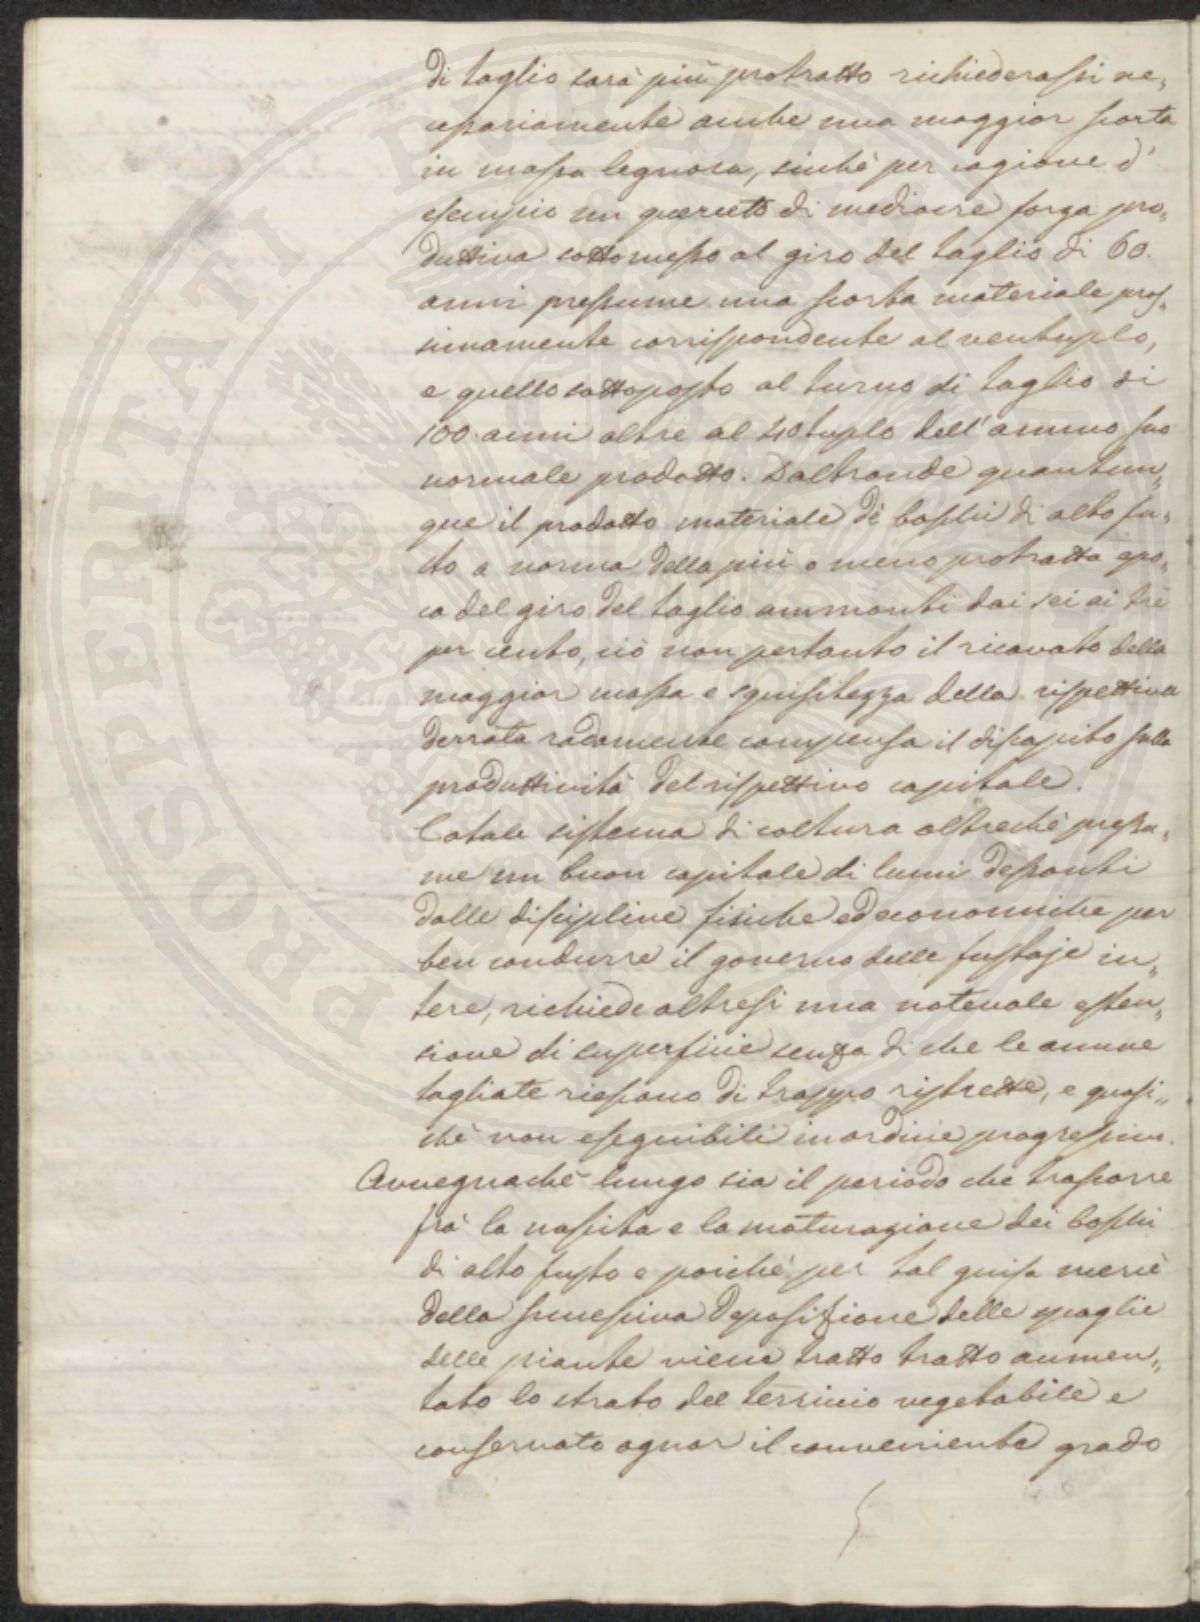 di taglio sarà più protratto richiederassi ne,,
cessariamente anche una maggior scorta
in massa legnosa, sinchè per cagione d'
esempio un querceto di mediocre forza pro,,
duttiva sottomesso al giro del taglio di 60.
anni pressume una scorta materiale pros,,
simamente corrispondente al ventuplo,
e quello sottoposto al turno di taglio di
100 anni oltre al 40tuplo dell' annuo suo
normale prodotto. Daltronde quantun,,
que il prodotto materiale dè boschi di alto fu,,
sto a norma della più o meno protratta epo,,
ca del giro del taglio ammonti dai sei ai trè
per cento, ciò non pertanto il ricavato della
maggior massa e squisitezza della rispettiva
derrata radamente compensa il discapito sulla
produttività del rispettivo capitale.
Cotale sistema di coltura oltrechè pressu,,
me un buon capitale di lumi dessonti
dalle discipline fisiche ed economiche per
ben condurre il governo delle fustaje in,,
tere, richiede altresì una notevole esten,,
sione di superficie senza di che le annue
tagliate riescono di troppo ristrette, e quasi,,
chè non eseguibili in ordine progressivo.
Avvegnachè lungo sia il periodo che trascorre
frà la nascita e la maturazione dei boschi
di alto fusto e poichè per tal guisa mercè
della successiva deposizione delle spoglie
delle piante viene tratto tratto aumen,,
tato lo strato del terriccio vegetabile e
conservato ognor il conveniente grado
PROSPERITATI PUBLICAE